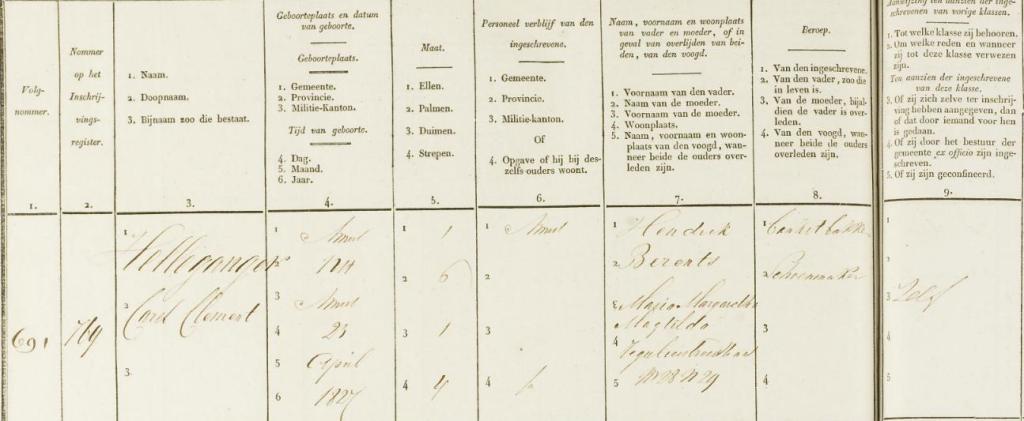 Volg-
nommer.
1.
Nommer
op het
Inschrij-
vings-
register.
2.
1. Naam.
2. Doopnaam.
3. Bijnaam zoo die bestaat.
3.
Geboorteplaats en datum
van geboorte.
Geboorteplaats.
1. Gemeente.
2. Provincie.
3. Militie-Kanton.
Tijd van geboorte.
4. Dag.
5. Maand.
6. Jaar.
4.
Maat.
1. Ellen.
2. Palmen.
3. Duimen.
4. Strepen.
5.
Personeel verblijf van den
ingeschrevene.
1. Gemeente.
2. Provincie.
3. Militie-kanton.
Of
4. Opgave of hij bij des-
zelfs ouders woont.
6.
Naam, voornaam en woonplaats
van vader en moeder, of in
geval van overlijden van bei-
den, van den voogd.
1. Voornaam van den vader.
2. Naam van de moeder.
3. Voornaam van de moeder.
4. Woonplaats.
5. Naam, voornaam en woon-
plaats van den voogd, wan-
neer beide de ouders over-
leden zijn.
7.
Beroep.
1. Van den ingeschrevene.
2. Van den vader, zoo die
in leven is.
3. Van de moeder, bijal-
dien de vader is over-
leden.
4. Van den voogd, wan-
neer beide de ouders
overleden zijn.
8.
Aanwijzing ten aanzien der inge-
schrevenen van vorige klassen.
1. Tot welke klasse zij behooren.
2. Om welke reden en wanneer
zij tot deze klasse verwezen
zijn.
Ten aanzien der ingeschrevene
van deze klasse.
3. Of zij zich zelve ter inschrij-
ving hebben aangegeven, dan
of dat door iemand voor hen
is gedaan.
4. Of zij door het bestuur der
gemeente ex officio zijn inge-
schreven.
5. Of zij zijn geconfineerd.
9.
691
769
1
Helliganger
2
Carel Clement
3
1 Amst
2 NH
3 Amst
4 23
5 April
6 1827
1 1
2 6
3 1
4 4
1 Amst
2
3
4
1 Hendrik
2 Berents
3 Maria Margaretha
Magtilda
4
5 N 29
1
2 Schoenmaker
3
4
1
2
3 Zelf
4
5